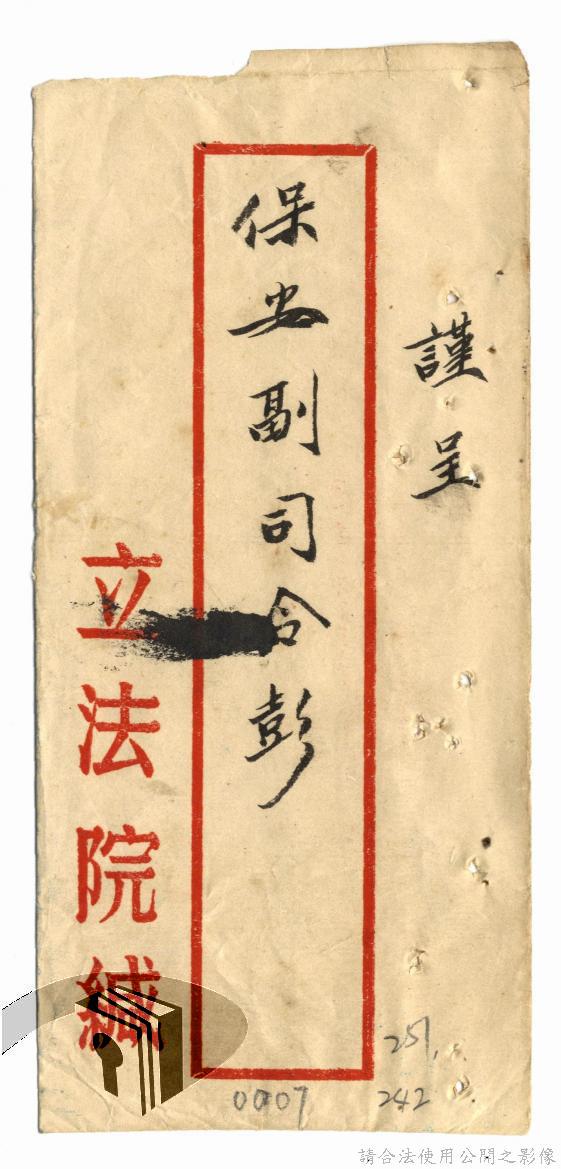 謹呈
保安副司令彭
立法院緘
251
242
0007
請合法使用公開之影像